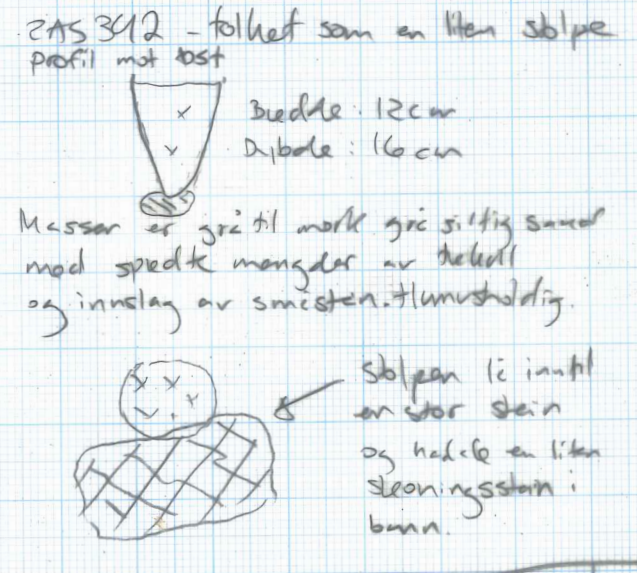 2AS342 - tolket som en liten stolpe
Profil mot øst
Bredde: 12cm
Dybde: 16cm
Massen er grå til mørk grå siltig sand
med spredte mengder av trekull
og innslag av småsten. Humusholdig.
Stolpen lå inntil
en stor stein
og hadde en liten
skoningsstein i
bunn.